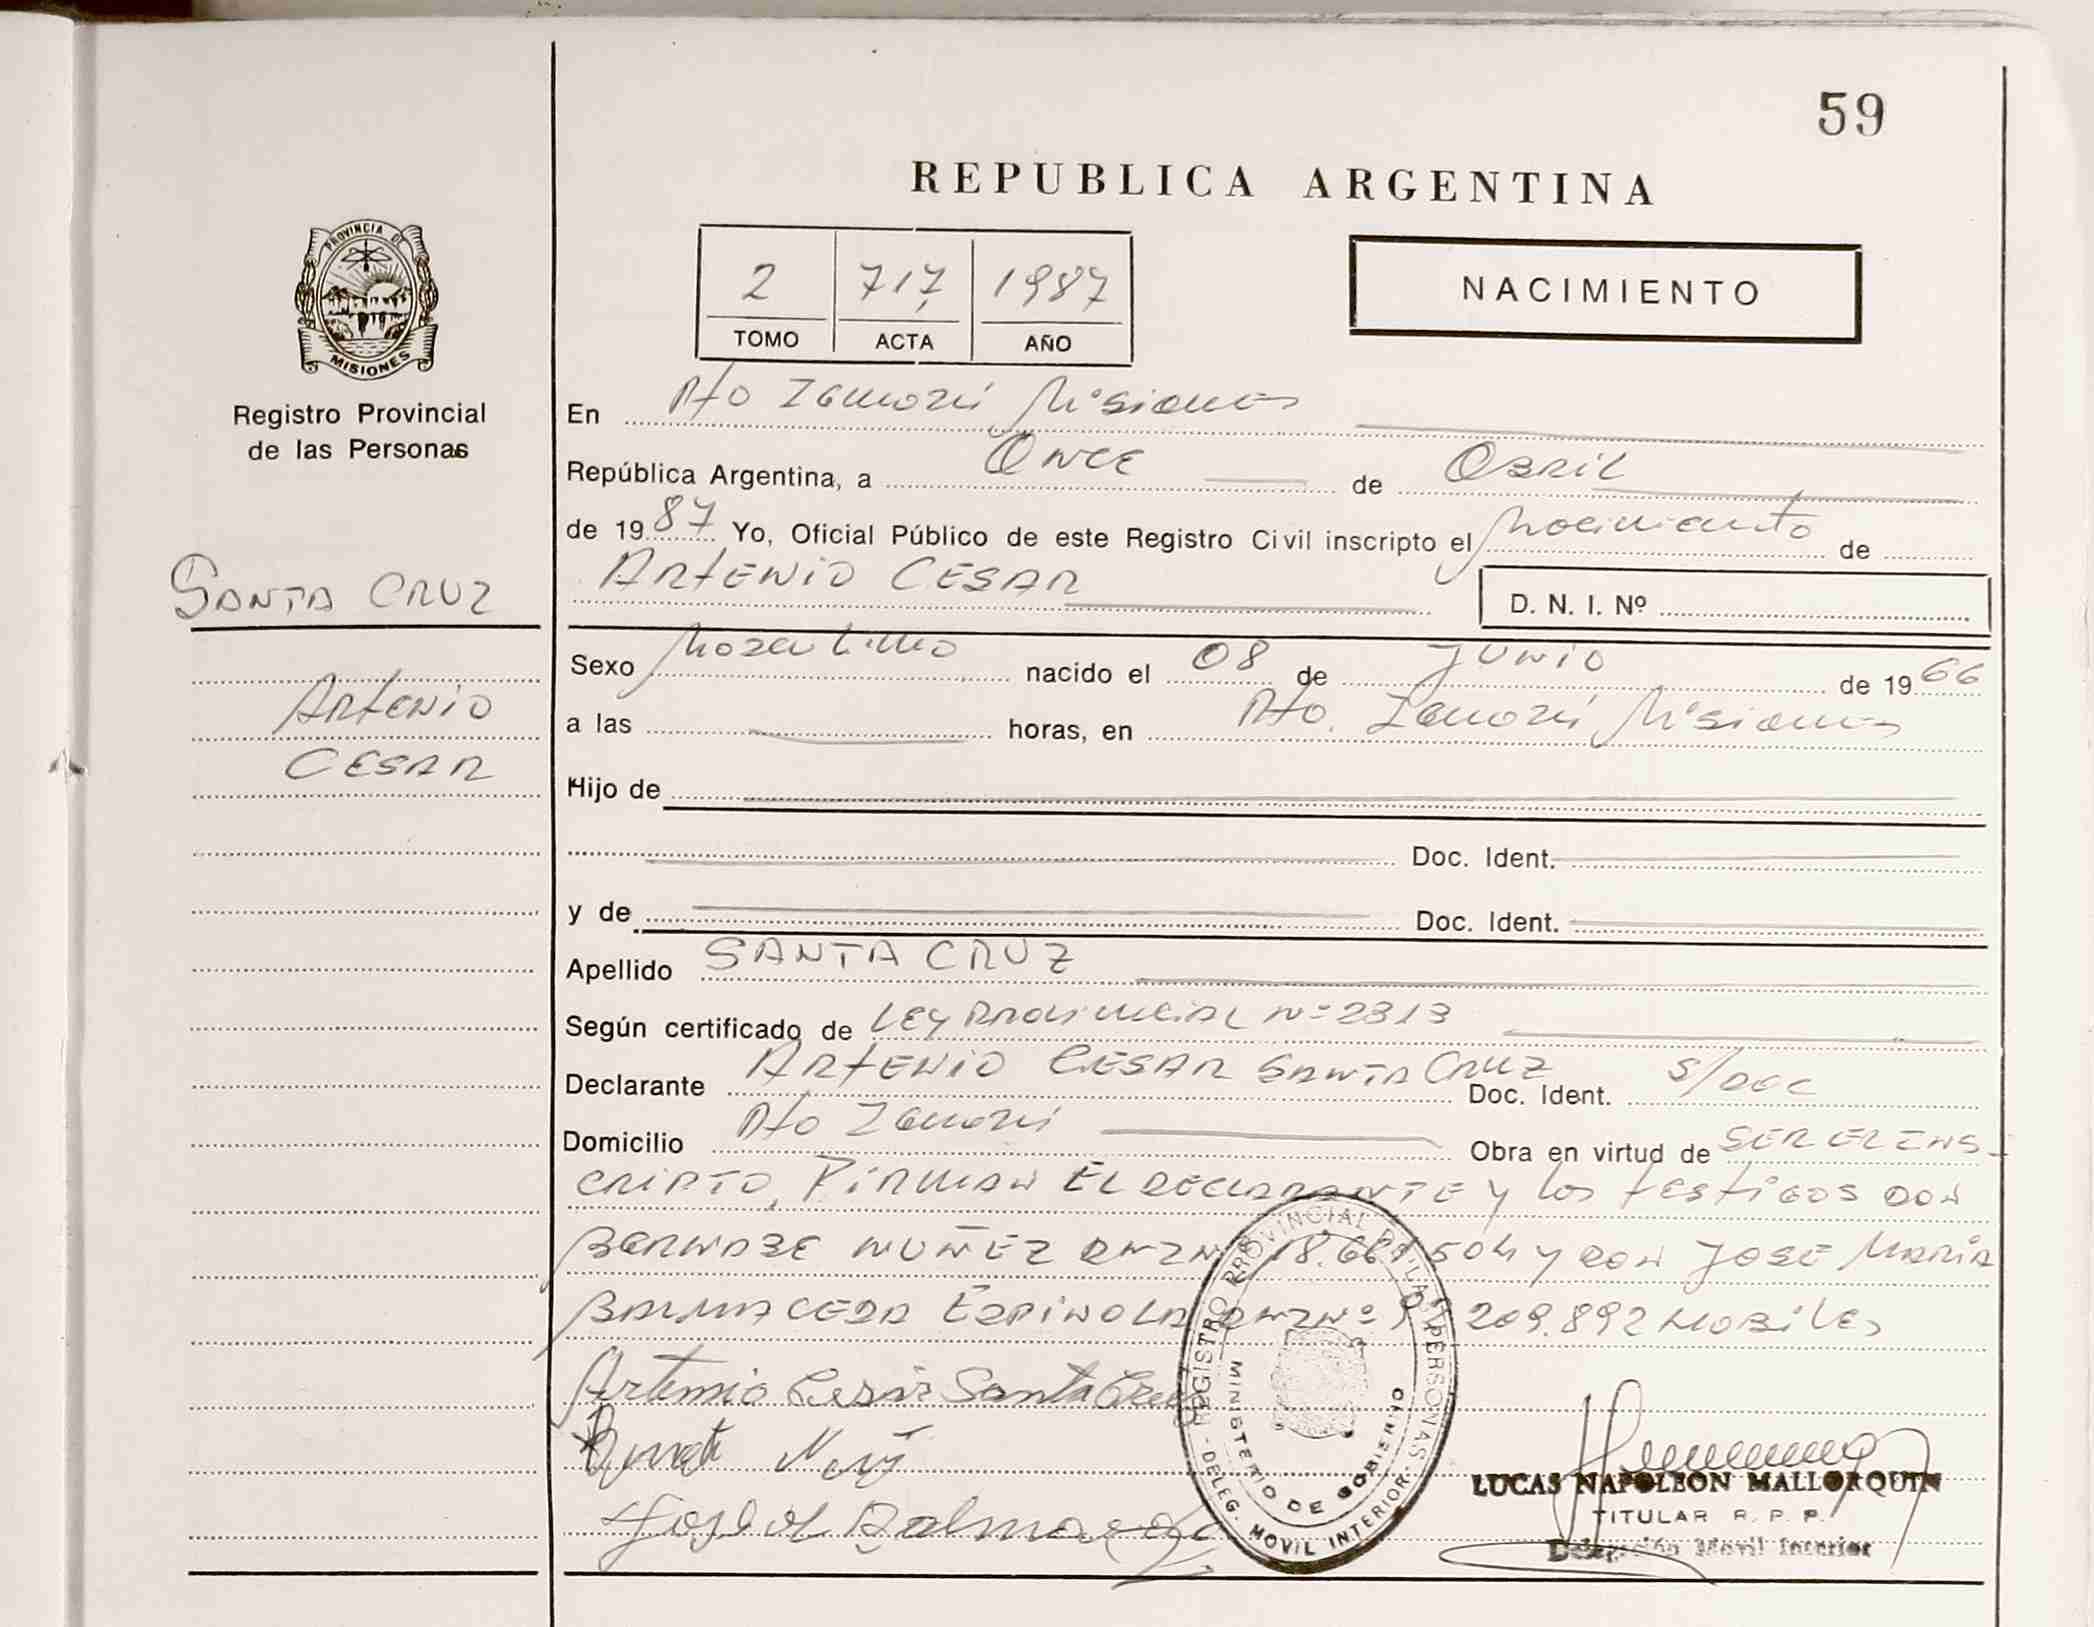 59
REPUBLICA ARGENTINA
PROVINCIA DE
MISIONES
Registro Provincial
de las Personas
2 717 1987
TOMO ACTA AÑO
NACIMIENTO
En Pto Zamora Misiones
República Argentina, a Once de Abril
de 1987 Yo, Oficial Público de este Registro Civil inscripto el Nacimiento de
SANTA CRUZ
ARTEMIO CESAR
D. N. I. Nº
Sexo Masculino nacido el 08 de JUNIO de 1966
ARTEMIO
CESAR
a las horas, en Pto. Misiones
Hijo de
Doc. Ident.
y de Doc. Ident.
Apellido SANTA CRUZ
Según certificado de LEY PROVINCIAL Nº 2313
Declarante ARTEMIO CESAR SANTA CRUZ Doc. Ident. S/DOC
Domicilio Pto Obra en virtud de SER EL INS-
CRIPTO, FIRMAN EL DECLARANTE y los testigos DON
BERNABE NUÑEZ DNI Nº 18. 504 y DON JOSE MARIA
BALMACEDA ESPINOLA DNI Nº 209.892 HABILES
Artemio Cesar Santa Cruz
REGISTRO PROVINCIAL DE LAS PERSONAS
MINISTERIO DE GOBIERNO
DELEG. MOVIL INTERIOR
LUCAS NAPOLEON MALLORQUIN
TITULAR R. P. P.
Delegación Móvil Interior